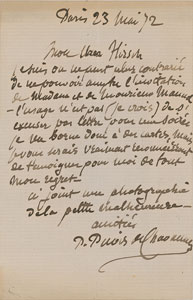 Paris 23 mai 92
Mon cher Hirsch
Je suis on ne peut plus contrarié
de ne pouvoir
de Madame et de Monsieur Manuel
l'usage n'est pas (je crois) de s'
excuser par lettre pour une soirée
je me borne donc à des cartes, mais
je vous serais vraiment reconnaissant
de témoigner pour moi de tout
mon regret
ci joint une photographie
de la petite
amitiés
P. Puvis de Chavannes